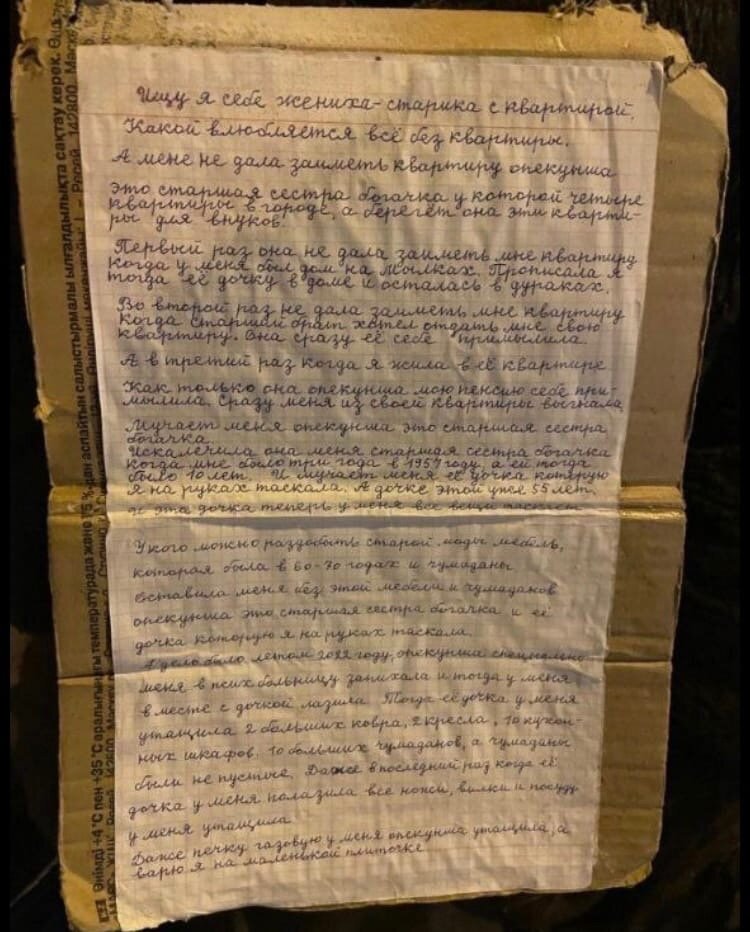 Ищу я себе жениха-старика с квартирой.
Какой влюбляется всё без квартиры.
А мене не дала заиметь квартиру опекунша
это старшая сестра богачка у которой четыре
квартиры в городе, а берегёт она эти кварти-
ры для внуков.
Первый раз она не дала заиметь мне квартиру
когда у меня был дом на Мылках. Прописала я
тогда её дочку в доме и осталась в дураках.
Во второй раз не дала заиметь мне квартиру
когда старший брат хотел отдать мне свою
квартиру. Она сразу её себе примылила.
А в третий раз когда я жила в её квартире
Как только она опекунша мою пенсию себе при-
мылила. Сразу меня из своей квартиры выгнала
Мучает меня опекунша это старшая сестра
богачка.
Искалечила она меня старшая сестра богачка
когда мне было три года в 1957 году, а ей тогда
было 10 лет. И мучает меня её дочка которую
я на руках таскала. А дочке этой уже 55 лет.
И эта дочка теперь у меня все вещи таскает
У кого можно раздобыть старой моды мебель,
которая была в 60-70 годах и чумаданы
Оставила меня без этой мебели и чумаданов
опекунша это старшая сестра богачка и её
дочка которую я на руках таскала.
А дело было летом 2022 году, опекунша специально
меня в псих больницу запихала и тогда у меня
в месте с дочкой лазила. Тогда её дочка у меня
утащила 2 больших ковра, 2 кресла, 10 кухон-
ных шкафов. 10 больших чумаданов, а чумаданы
были не пустые. Даже в последний раз когда её
дочка у меня полазила все ножи, вилки и посуду
у меня утащила
Даже печку газовую у меня опекунша утащила, а
варю я на маленькой плиточке
Өнімді +4 °С пен +35 °С аралығындағы температурада және 75 %-ден аспайтын салыстырмалы ылғалдылықта сақтау керек.
142800, Мәскеу